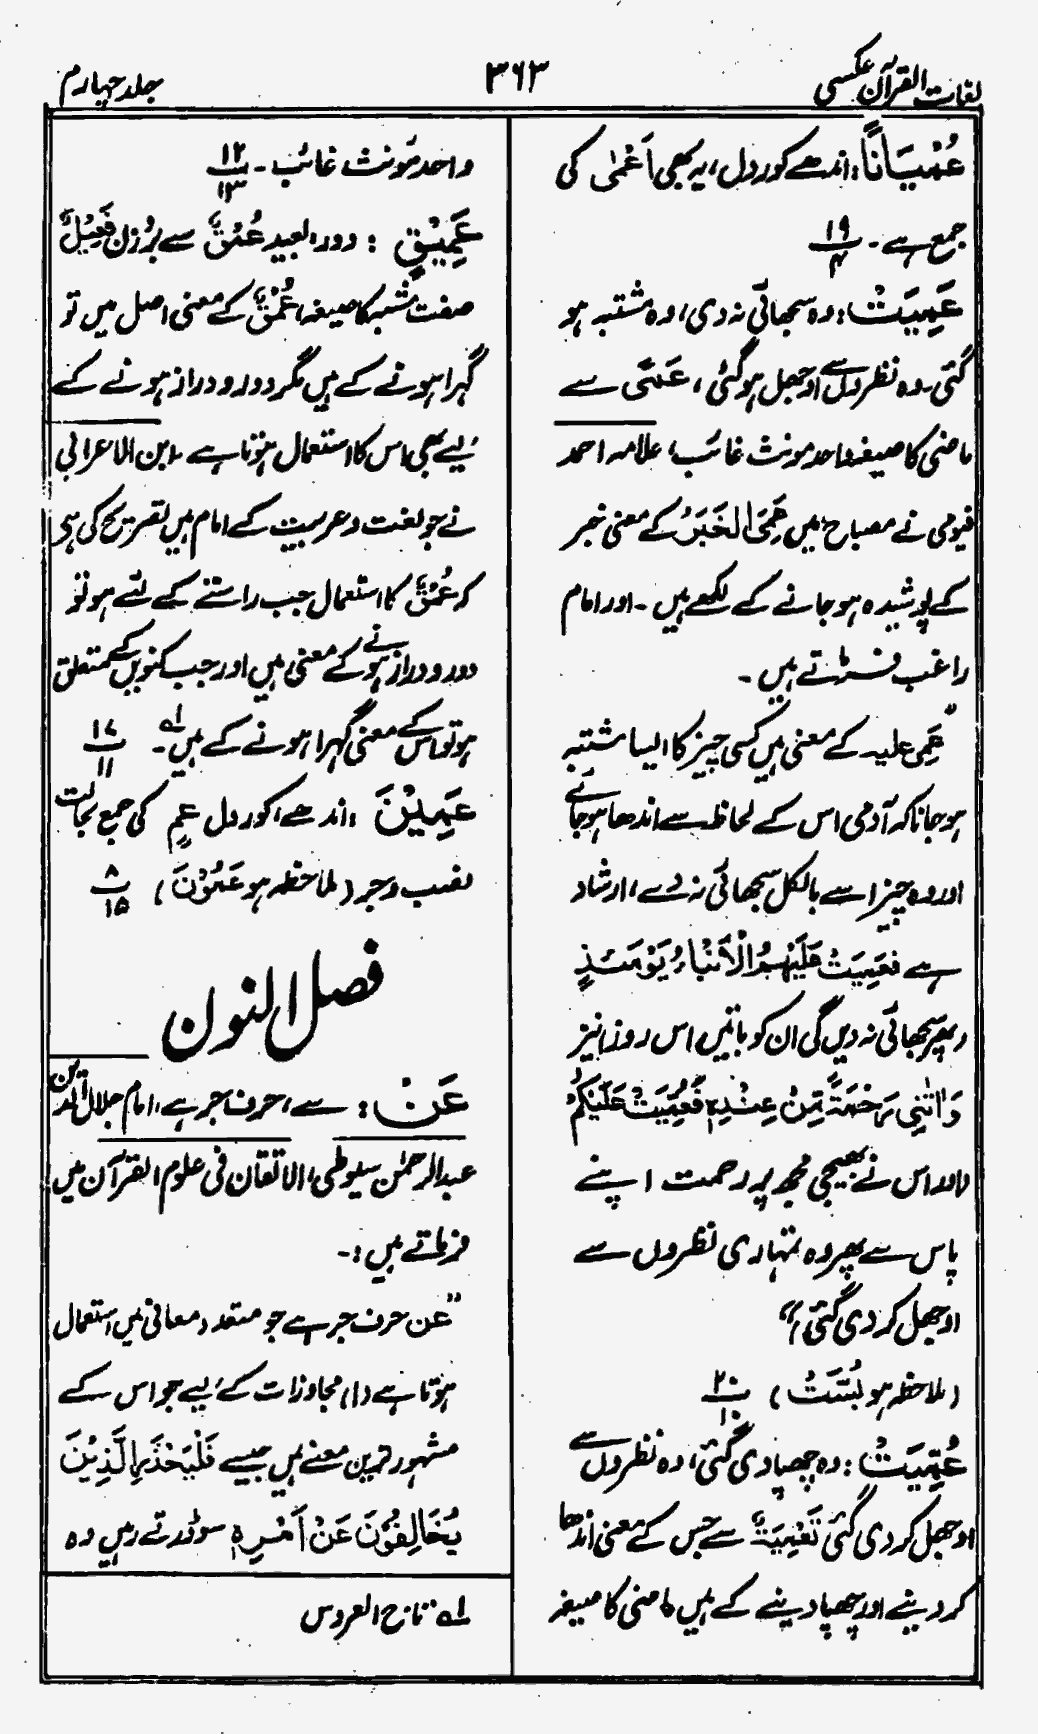 لغات القرآن عکسی
۳۶۳
جلد چہارم
عُمْيَانًا: اندھے کور دل، یہ بھی اَعْمٰی کی
جمع ہے۔ ۱۹/۴
عَمِيَتْ: وہ سجھائی نہ دی، وہ مشتبہ ہو
گئی۔ وہ نظروں سے اوجھل ہو گئی، عَمًی سے
ماضی کا صیغہ واحد مونث غائب، علامہ احمد
فیومی نے مصباح میں عَمِیَ الْخَبَرُ کے معنی خبر
کے پوشیدہ ہو جانے کے لکھے ہیں۔ اور امام
راغب فرماتے ہیں۔
"عَمِیَ علیہ کے معنی ہیں کسی چیز کا ایسا مشتبہ
ہو جانا کہ آدمی اس کے لحاظ سے اندھا ہو جائے
اور وہ چیز اسے بالکل سجھائی نہ دے، ارشاد
ہے فَعَمِيَتْ عَلَيْهِمُ الْأَنْبَاءُ يَوْمَئِذٍ
(پھر سجھائی نہ دیں گی ان کو باتیں اس روز) نیز
وَاٰتٰنِي رَحْمَةً مِّنْ عِنْدِهٖ فَعُمِّيَتْ عَلَيْكُمْ
(اور اس نے بھیجی مجھ پر رحمت اپنے
پاس سے پھر وہ تمہاری نظروں سے
اوجھل کر دی گئی)"
(ملاحظہ ہو بُسَّتْ) ۲۰/۱۰
عُمِّيَتْ: وہ چھپا دی گئی، وہ نظروں سے
اوجھل کر دی گئی تَعْمِيَةٌ سے جس کے معنی اندھا
کر دینے اور چھپا دینے کے ہیں ماضی کا صیغہ
واحد مونث غائب۔ ۱۲/۱۳
عَمِيْقٍ: دور، بعید عُمْقٌ سے بروزن فَعِيْلٌ
صفت مشبہ کا صیغہ، عُمْقٌ کے معنی اصل میں تو
گہرا ہونے کے ہیں مگر دور و دراز ہونے کے
لیے بھی اس کا استعمال ہوتا ہے۔ ابن الاعرابی
نے جو لغت و عربیت کے امام ہیں تصریح کی ہی
کہ عُمْقٌ کا استعمال جب راستے کے لئے ہو تو
دور و دراز ہونے کے معنی ہیں اور جب کنویں کے متعلق
ہو تو اس کے معنی گہرا ہونے کے ہیں۔ لہ ۱۷/۱۱
عَمِيْنَ: اندھے، کور دل عَمٍ کی جمع بحالت
نصب و جر (ملاحظہ ہو عَمُوْنَ) ۸/۱۵
فصل النون
عَنْ: سے، حرف جر ہے، امام جلال الدین
عبدالرحمٰن سیوطی، الاتقان فی علوم القرآن میں
فرماتے ہیں:۔
"عن حرف جر ہے جو متعدد معانی میں استعمال
ہوتا ہے (۱) مجاوزات کے لیے جو اس کے
مشہور ترین معنے ہیں جیسے فَلْيَحْذَرِ الَّذِيْنَ
يُخَالِفُوْنَ عَنْ اَمْرِهٖ سو ڈرتے رہیں وہ
لہ تاج العروس